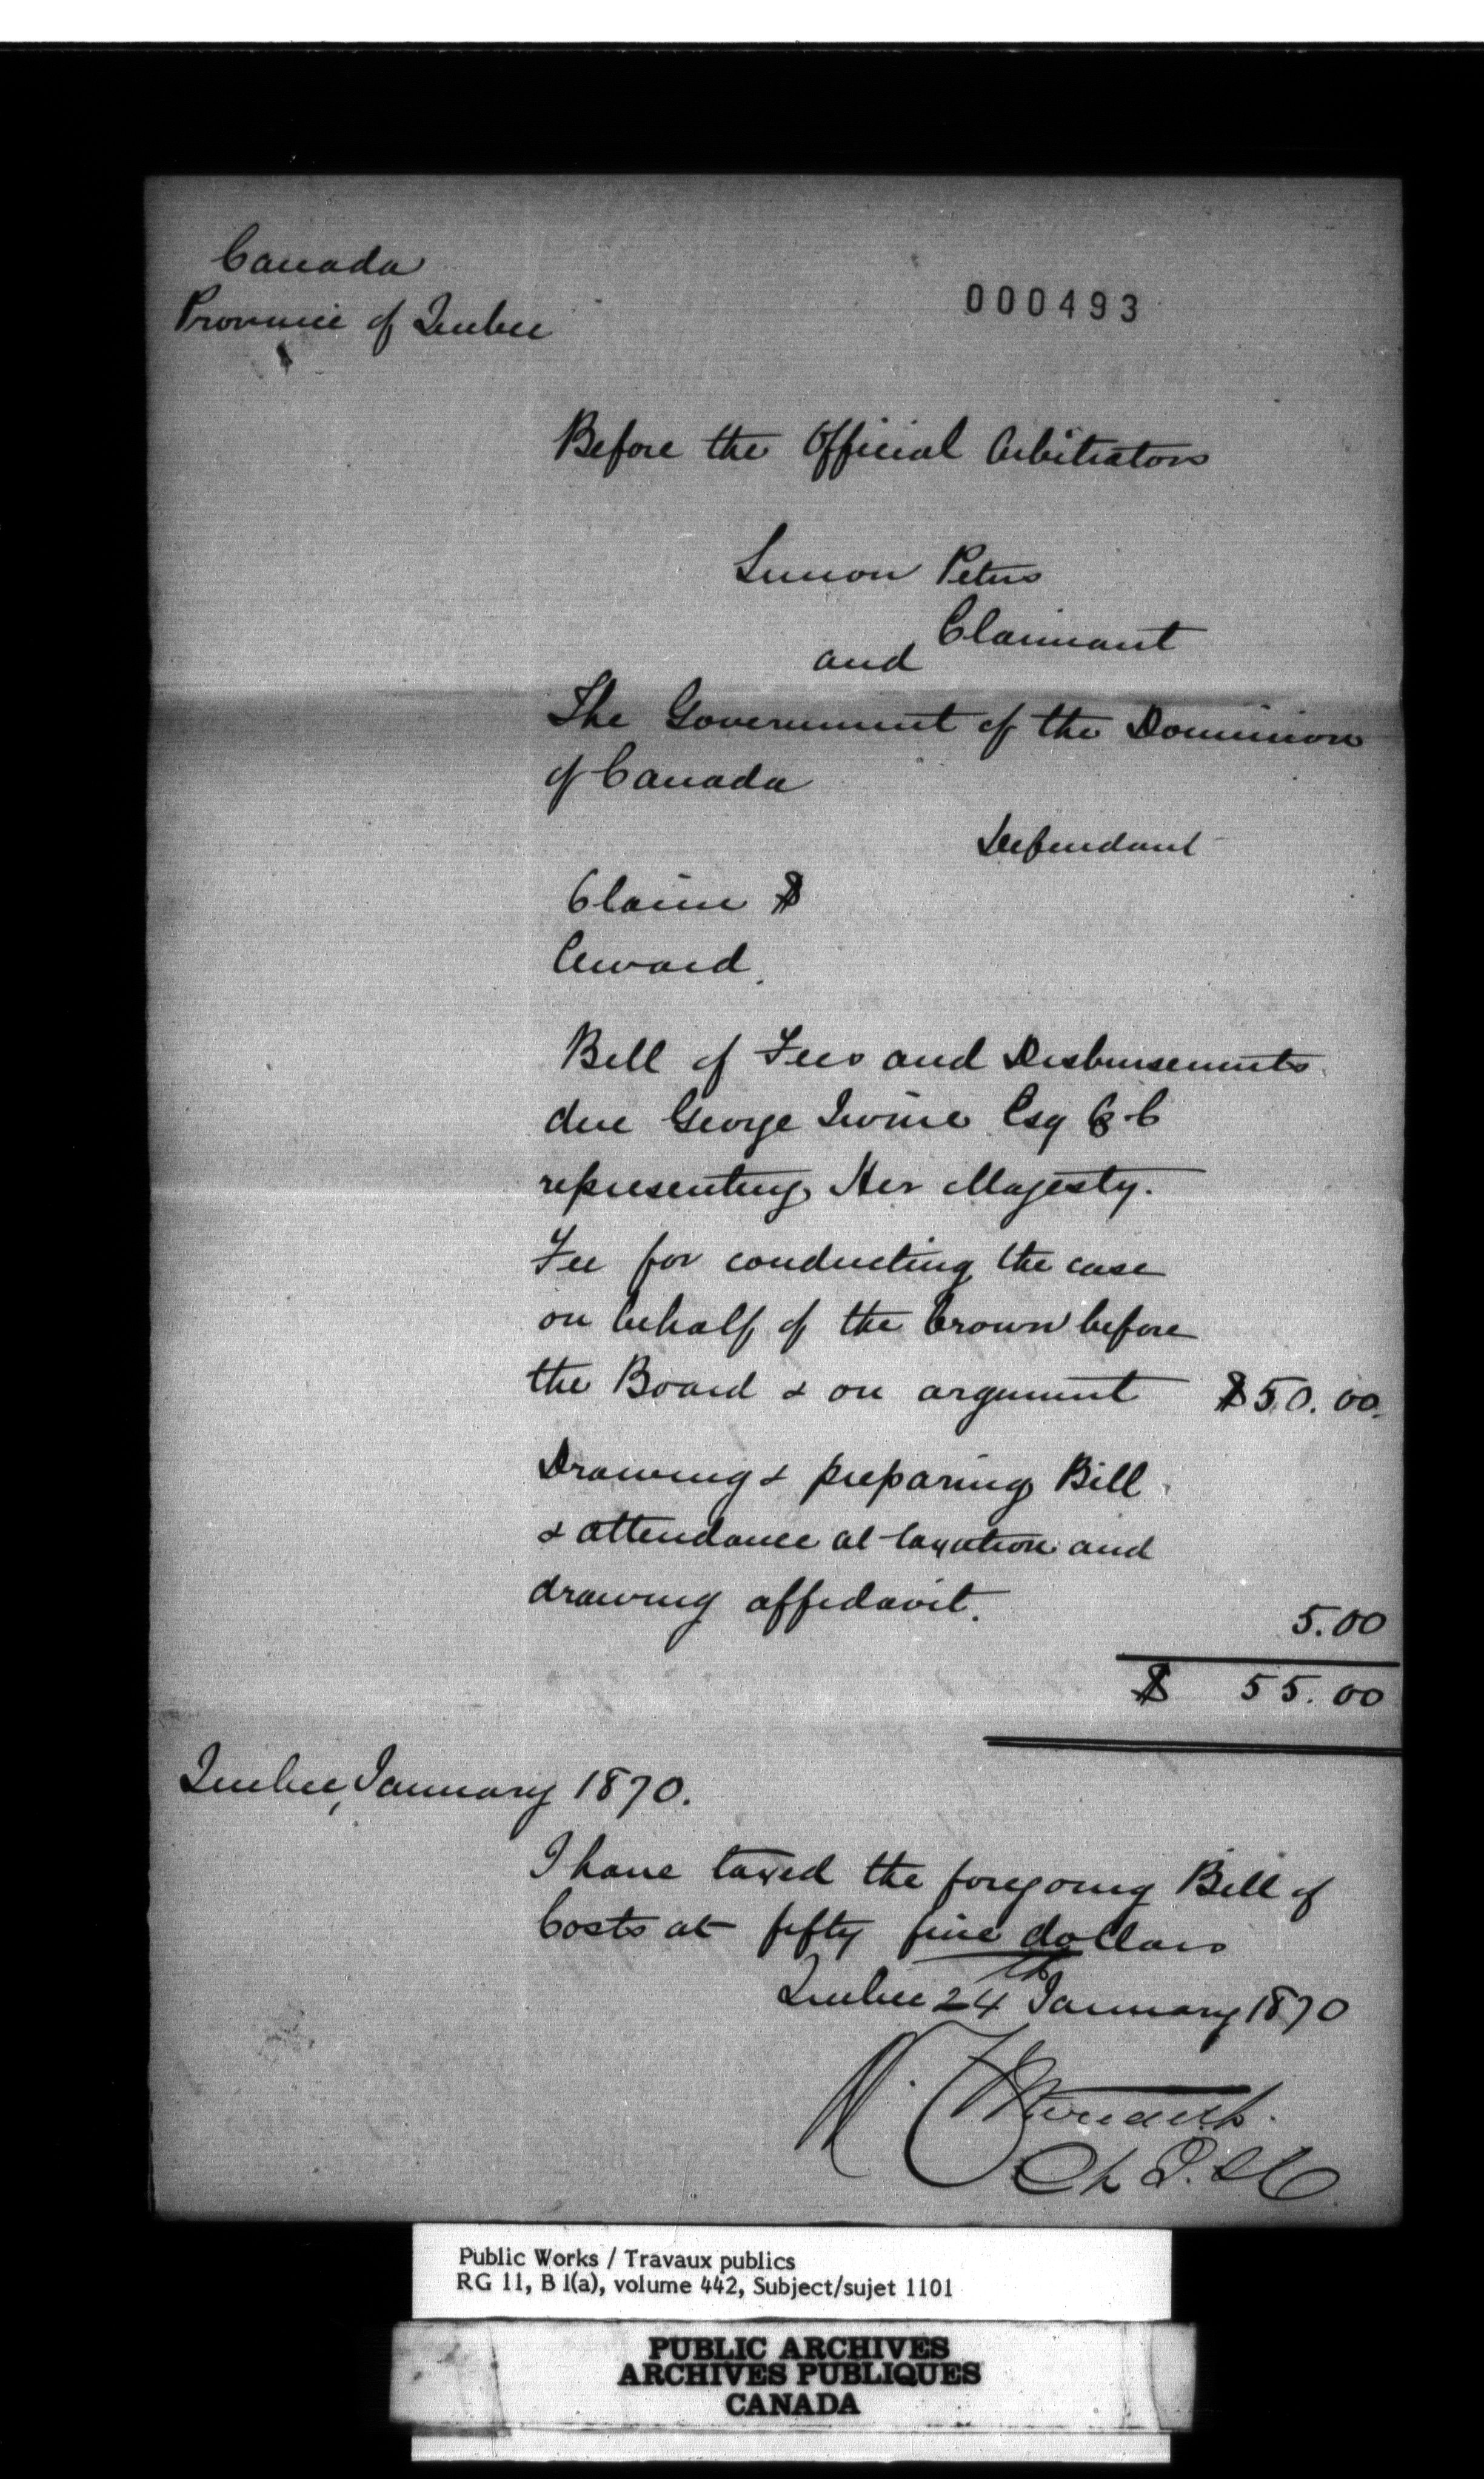 Canada
Province of Quebec
000493
Before the Official Arbitrators
Simon Peters
Claimant
and
The Government of the Dominion
of Canada
Defendant
Claim $
Award.
Bill of Fees and Disbursements
due George Irvine Esq Q.C
representing Her Majesty.
Fee for conducting the case
on behalf of the Crown before
the Board & on argument $50.00
Drawing & preparing Bill
& attendance at taxation and
drawing affidavit.
5.00
$ 55.00
Quebec, January 1870.
I have taxed the foregoing Bill of
Costs at fifty five dollars
Quebec 24th January 1870
W. Meredith.
Ch J. S C
Public Works / Travaux publics
RG 11, B 1(a), volume 442, Subject/sujet 1101
PUBLIC ARCHIVES
ARCHIVES PUBLIQUES
CANADA